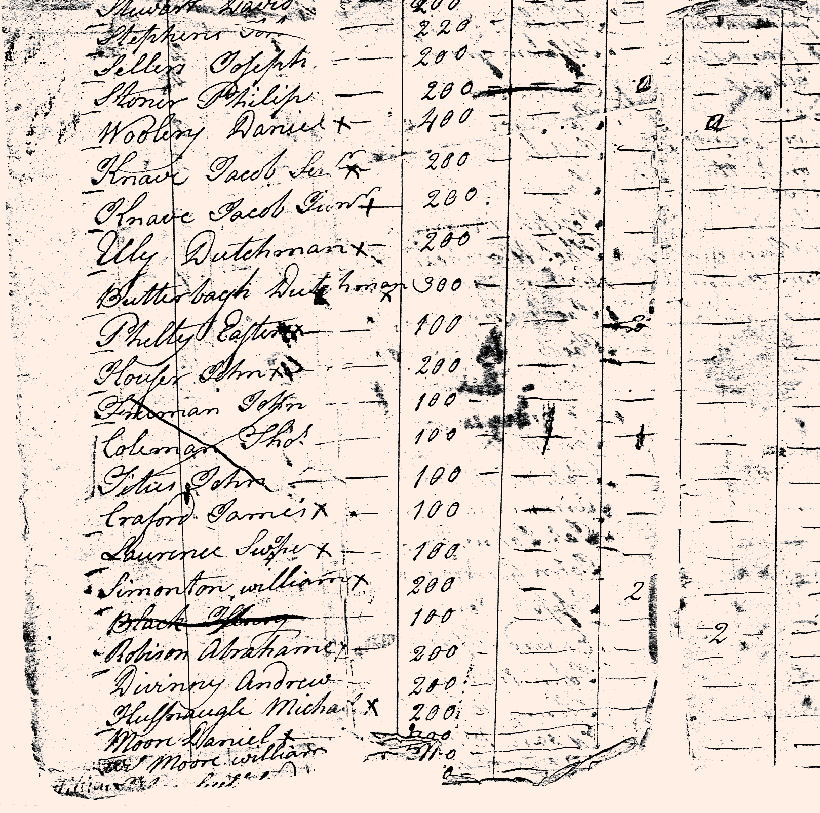 Stewart David 200
Stephens 220
Sellers Joseph 200
Stoner Philip 200
Woolery Daniel x 400
Knave Jacob Senr x 200
Knave Jacob Junr x 200
Uly Dutchman x 200
Butterbagh Dutchman x 300
Philty Easter x 100
Houser John x 200
Freeman John 100
Coleman Thos 100
Titus John 100
Craford James x 100
Laurence Swope x 100
Simonton william x 200 2
Black Henry 100
Robison Abraham 200 2
Divinny Andrew 200
Huffnaugle Michael x 200
Moore Daniel x 200
Moore william